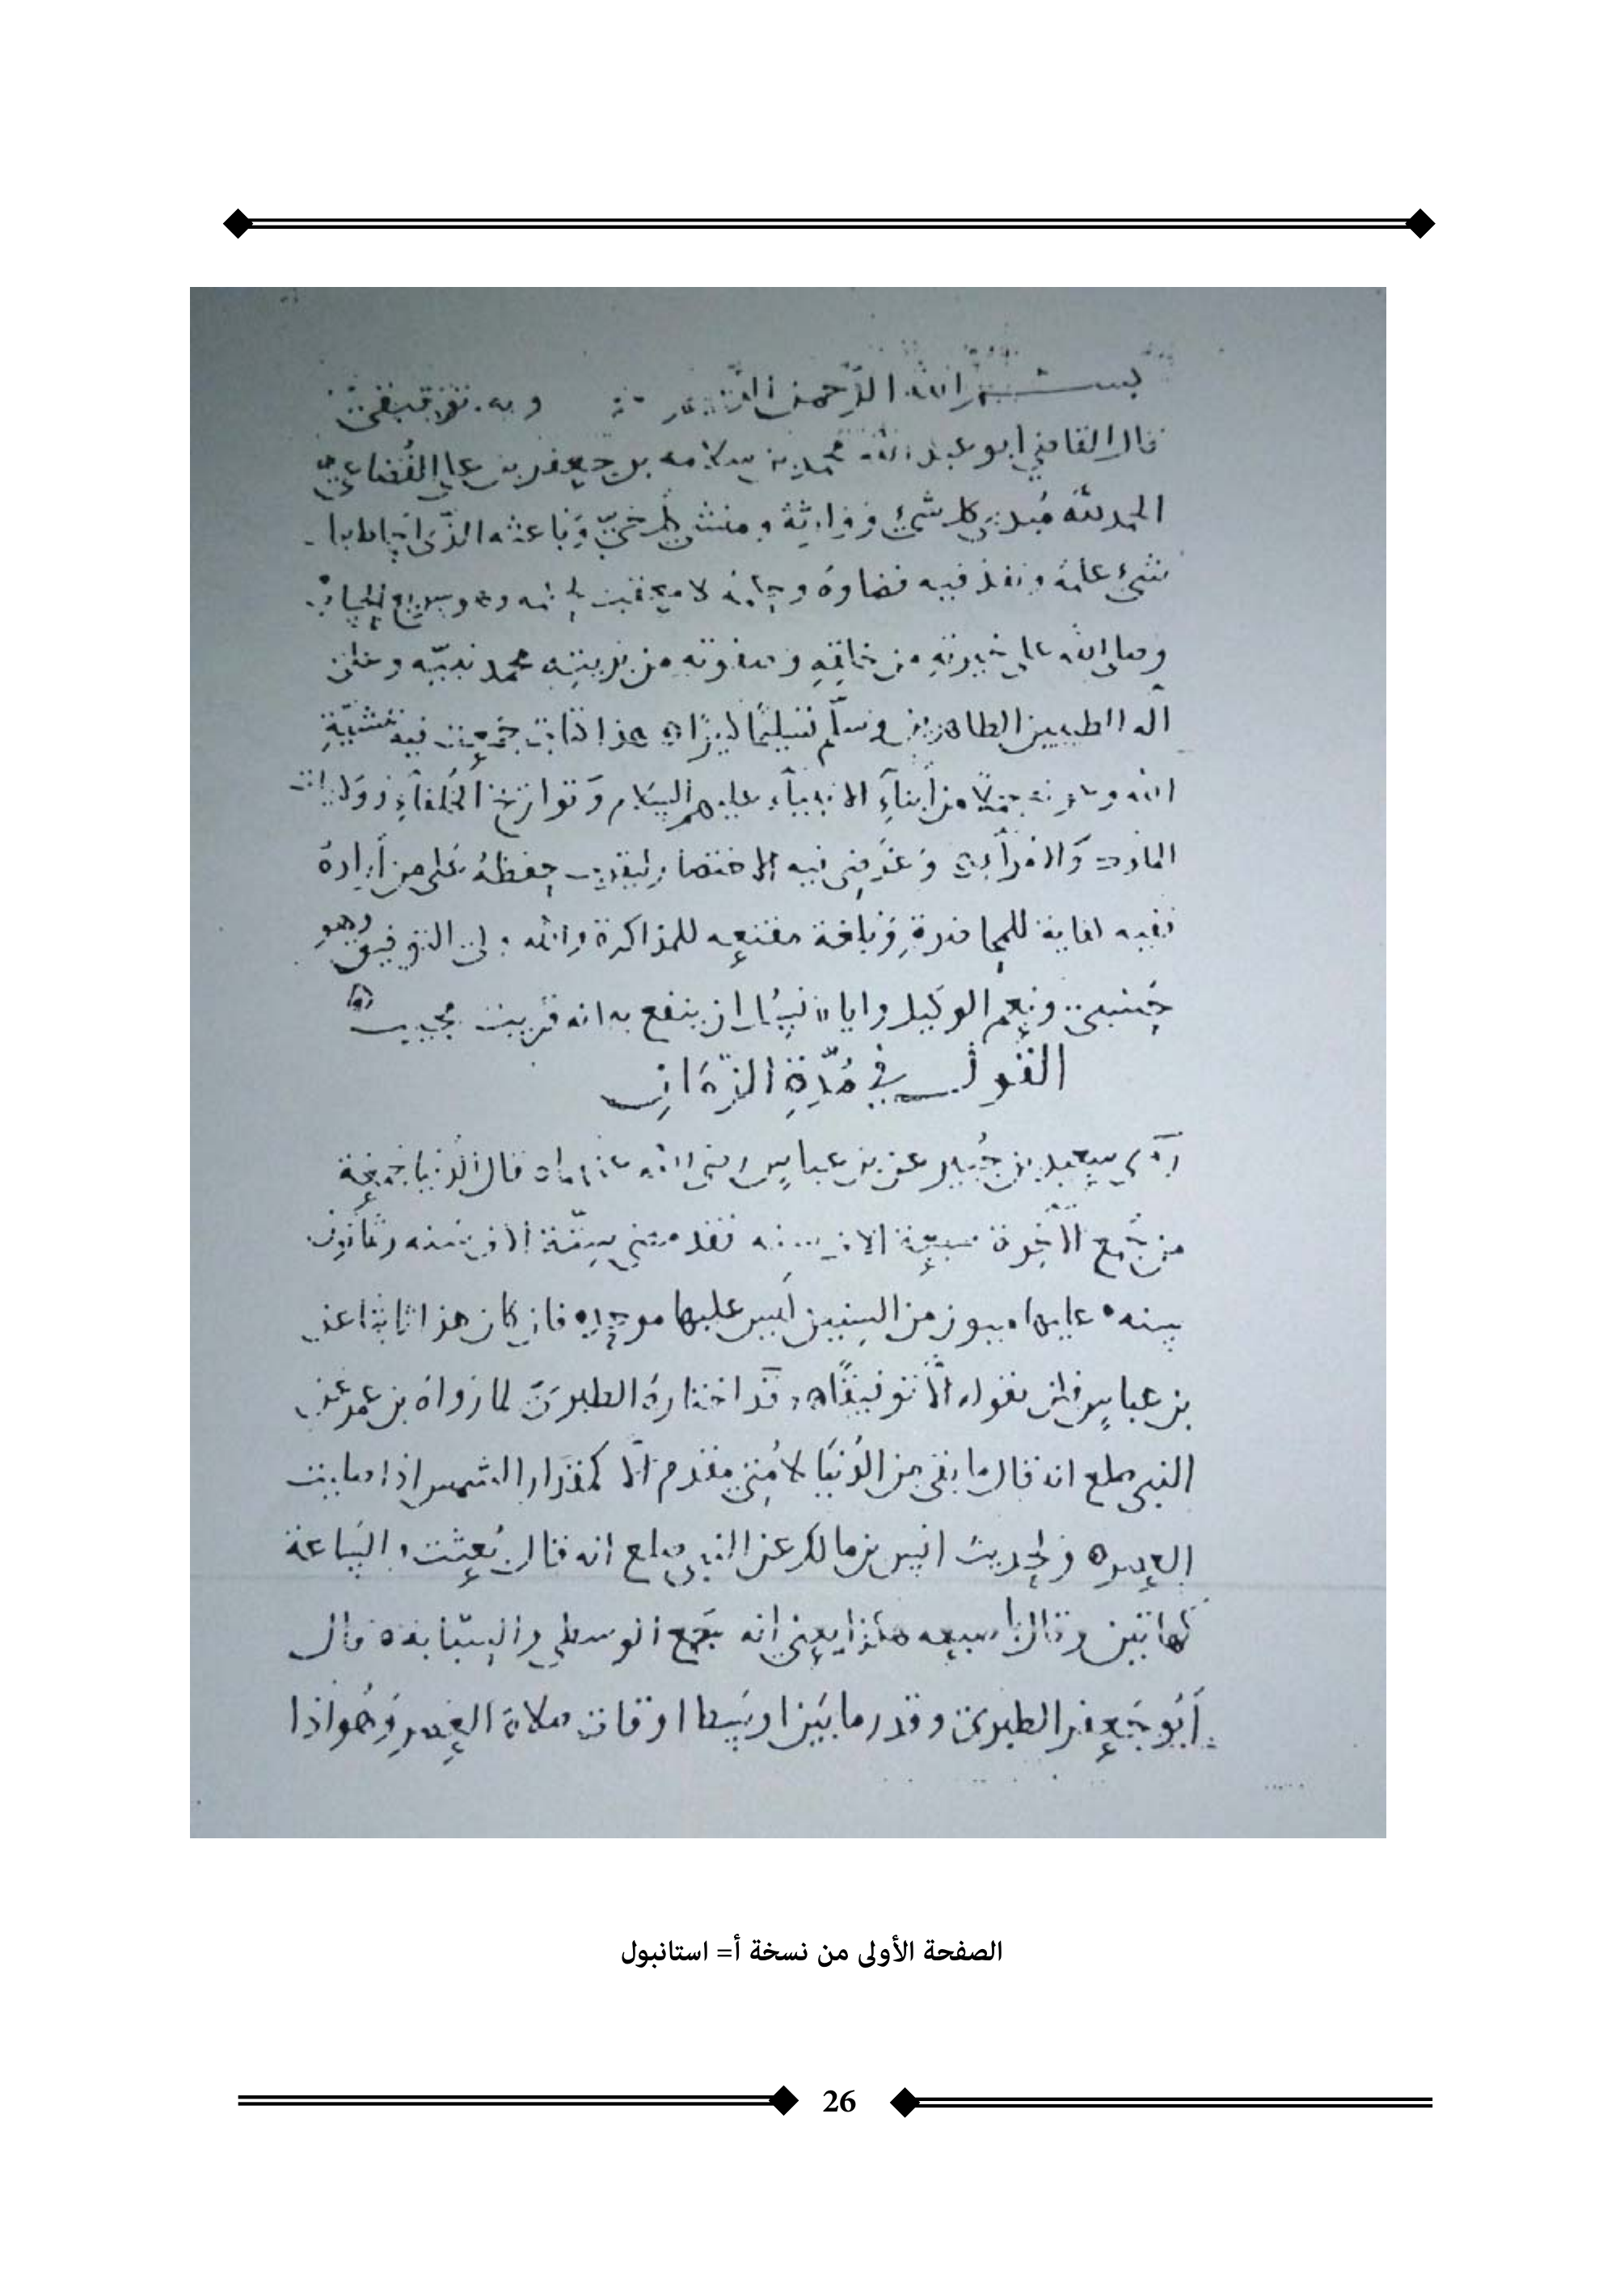 بسم الله الرحمن الرحيم وبه توفيقي
قال القاضي ابو عبد الله محمد بن سلامه بن جعفر بن علي القُضاعيّ
الحمد لله مُبدي كل شيْ ووارثة ومنشئ كل حيّ وَباعثه الذّي احاط بـا
شيْ علمهُ ونفذ فيه قضاوهُ و لا معقب لحكمه وهو سريع الحساب
وصلى الله على خيرته من خلقهِ وصفوته من بريته محمد نبيّه وعلى
اله الطيبين الطاهرين وسلّم تسليمًا كثيرًا هذا كتاب جَمعت فيه بمشيّةِ
الله وعونه جملًا من أنبآءِ الانبيآء عليهم السلام وَتواريخ الخُلفاءِ وَولايات
الملوك وَالامرآء وَغَرضي فيه الاختصار ليقرب حِفظهُ عَلى من أرادهُ
ففيه كفاية للمحاضرةِ وَبلغة مقنعِه للمذاكرة والله ولى التوفيق وهو
حَسبى ونِعم الوكيل واياه نسُال ان ينفع به انه قريب مجيب
القول في مُدّةِ الزمَانِ
روى سعيد بن جُبير عن بن عباس رضى الله عنهما انه قال الدُنيا جُمعة
من جُمع الآخِرة سبعِة الاف سنه فقد مضى ستّة الاف سنه ومائون
سنه عليها من السنين لَيس عليها موحد فان كان هذا ثابتًا عن
بن عباس فلن يقوله الاّ توفيقًا وقَد اختارهُ الطبرىّ لما رواهُ بن عمر عن
النبى صلع انه قال ما بقى من الدُنيَا لامُتى مقدم الاّ كمقدار الشمس اذا صليت
العصر وفى حديث انس بن مالك عن النبى صلع انه قال بُعِثت والسَاعة
كهاتين وقال باصبعه هكذا يعنى انه جَمع الوسطى والسبّابة قال
أبُو جَعفر الطبرى وقدر ما بَين اوسَط اوقات صلاة العصرِ وَهُو اذا
الصفحة الأولى من نسخة أ= استانبول
26